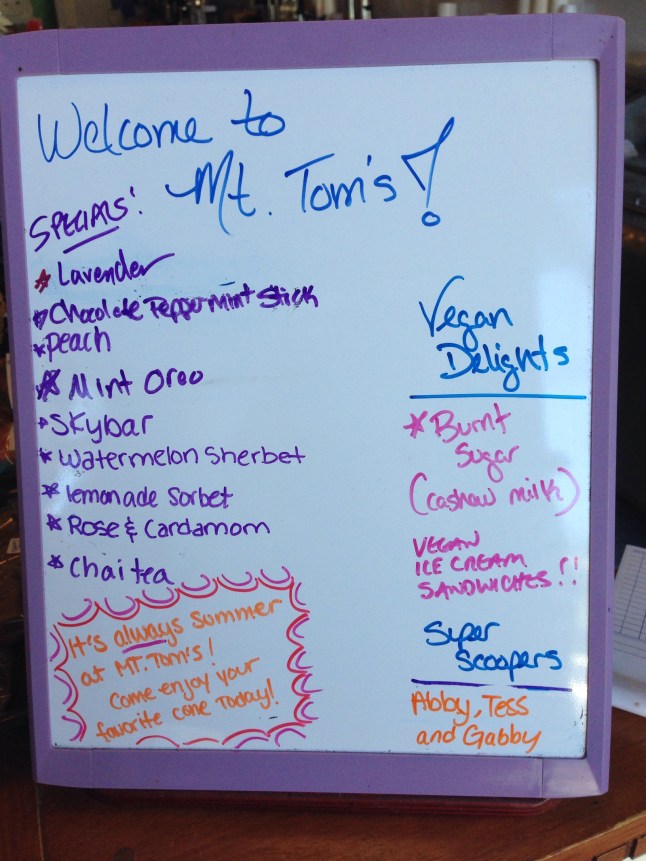 Welcome to
Mt. Tom's!
SPECIALS:
* Lavender
* Chocolate Peppermint Stick
* Peach
* Mint Oreo
* Skybar
* Watermelon Sherbet
* lemonade Sorbet
* Rose & Cardamom
* Chai tea
It's always summer
at MT. Tom's!
Come enjoy your
favorite cone Today!
Vegan
Delights
* Burnt
Sugar
(cashew milk)
VEGAN
ICE CREAM
SANDWICHES!!
Super
Scoopers
Abby, Tess
and Gabby